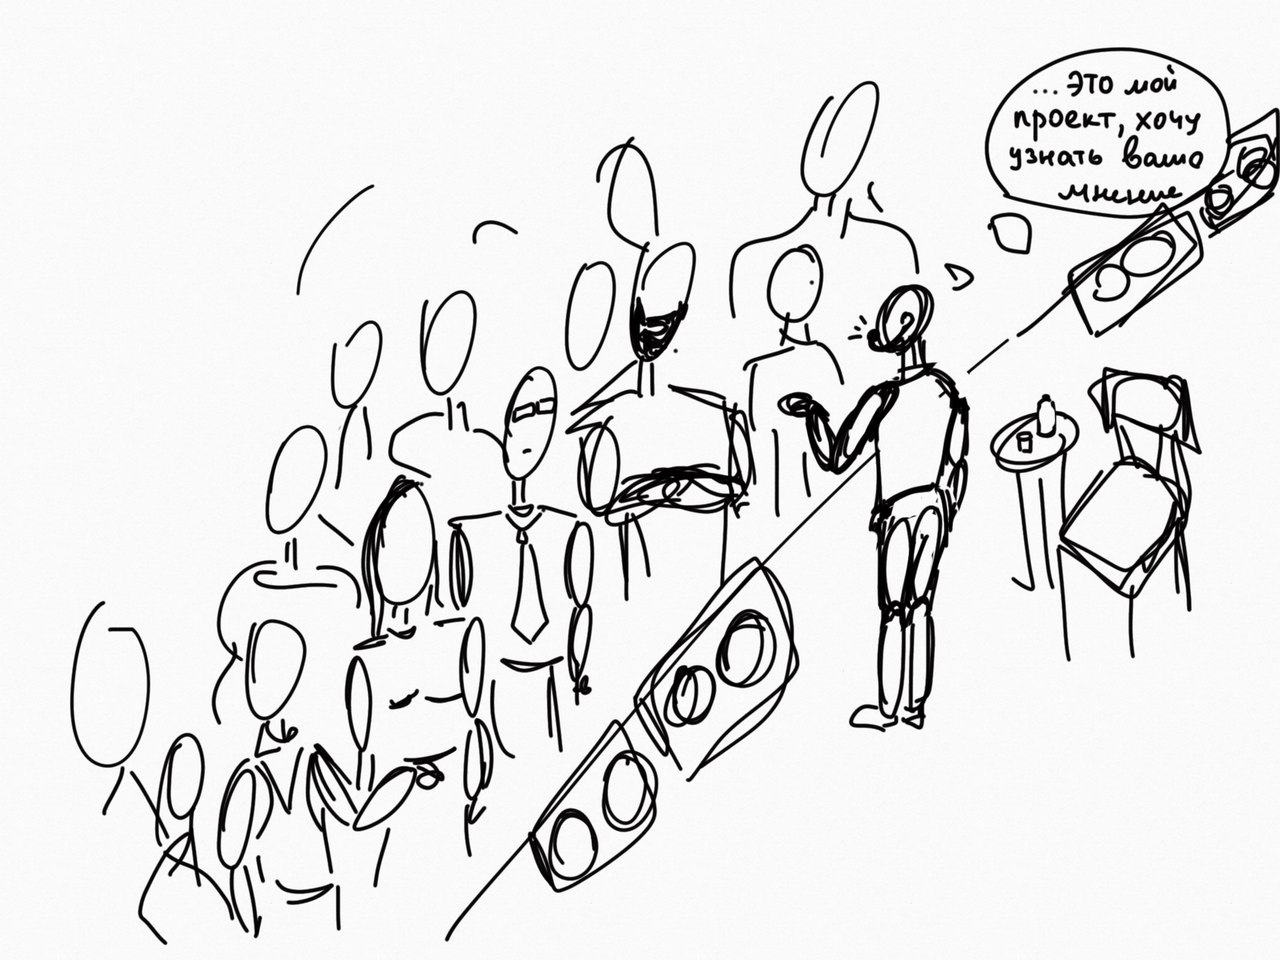 ...это мой
проект, хочу
узнать ваше
мнение